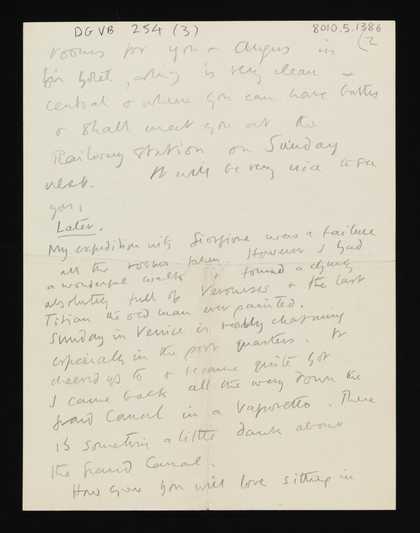 DG VB 254 (3)
8010.5.1386
(2
rooms for you & Angus in
his hotel, which is very clean
central & where you can have baths
& shall meet you at the
Railway Station on Sunday
next. It will be very nice to see
you,
Later.
My expedition with Giorgione was a failure
all the rooms taken. However I had
a wonderful walk & found a church
absolutely full of Veroneses & the last
Titian the old man ever painted.
Sunday in Venice is really charming
especially in the poor quarters. It
cleared up to & became quite hot
I came back all the way down the
Grand Canal in a Vaporetto. There
is something a little dark about
the Grand Canal.
How you will love sitting in